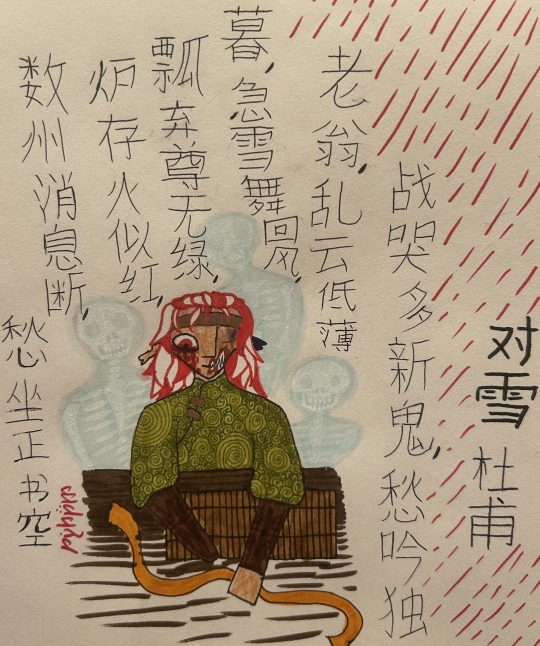 对雪 杜甫
战哭多新鬼,愁吟独
老翁,乱云低薄
暮,急雪舞回风,
瓢弃尊无绿,
炉存火似红,
数州消息断,
愁坐正书空